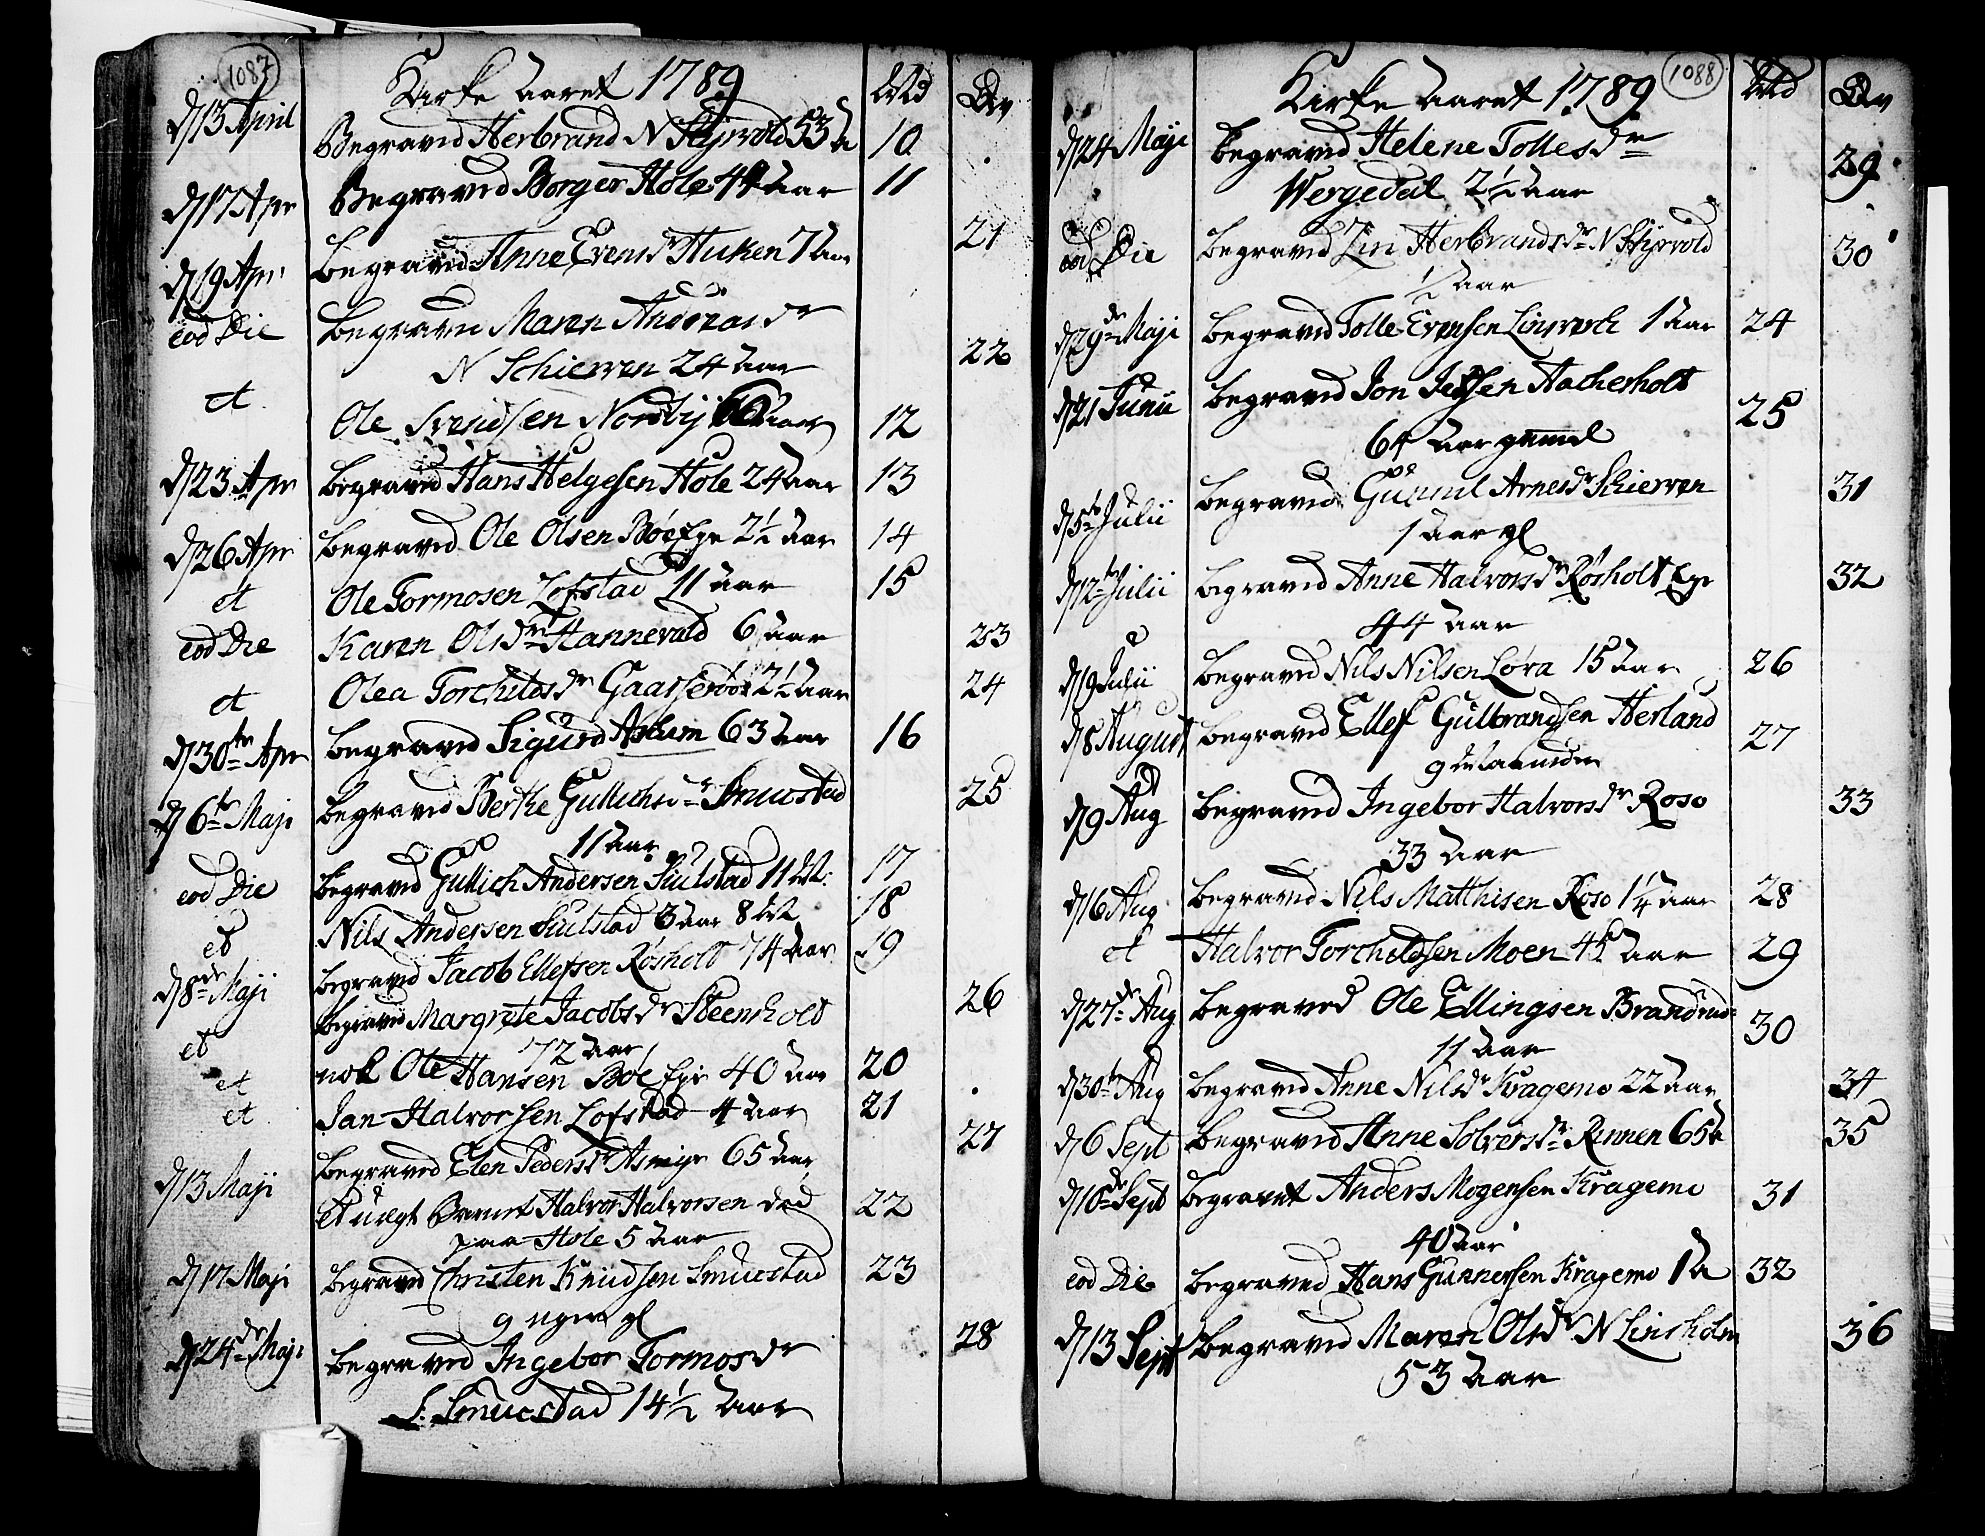 1087
Kirke Aaret 1789 Md Qv
d 13 April Begraved Herbrand N Styrvold 53 A 10
d 17 Apr Begraved Borger Hole 44 Aar 11
d 19 Apr Begraved Anne Evensdr Huken 7 Aar 21
eod Die Begraved Maren Andreasdr
N Schierven 24 Aar 22
et Ole Svendsen Nordby Aar 12
d 23 Apr Begraved Hans Helgesen Hole 24 Aar 13
d 26 Apr Begraved Ole Olsen Böe Eye 2½ Aar 14
et Ole Tormosen Lofstad 11 Aar 15
eod Die Karen Olsdr Hannevold 6 Aar 23
et Olea Torchildsdr 2½ Aar 24
d 30te Apr Begraved Sigurd Askum 63 Aar 16
d 6te Maji Begraved Berthe Gullichsdr Smuestad 25
11 Aar
eod Die Begraved Gullich Andersen Fiulstad 11 M: 17
et Nils Andersen Fiulstad 3 Aar 8 M 18
d 8de Maji Begraved Jacob Ellefsen Røsholt 74 Aar 19
et Begraved Margrete Jacobsdr Steensholt 26
72 Aar
et nok Ole Hansen Böe Eye 40 Aar 20
et Jan Halvorsen Lofstad 4 Aar 21
d 13 Maji Begraved Elen Pedersdr Asmyr 65 Aar 27
et uægt Barnet Halvor Halvorsen død 22
paa Hole 5 Aar
d 17 Maji Begraved Christen Knudsen Smuestad 23
9 uger gl
d 24de Maji Begraved Ingebor Tormosdr 28
S: Smuestad 14½ Aar
1088
Kirke Aaret 1789 Md Qv
d 24 Maji Begraved Helene Tollesdr 29
Wergedal 2½ Aar
eod Die Begraved Lin Herbrandsdr N Styrvold 30
½ Aar
d 29de Maji Begraved Tolle Evensen Linsverk 1 Aar 24
d 21 Junii Begraved Jon Jensen Aakerholt 25
64 Aar gammel
d 5te Julii Begraved Gunnil Arnesdr Schierven 31
1 Aar gl
d 12te Julii Begraved Anne Halvorsdr Røsholt Eye 32
44 Aar
d 19 Julii Begraved Nils Nilsen Løra 15 Aar 26
d 8 August Begraved Ellef Gulbrandsen Herland 27
9 Maaneder
d 9 Aug Begraved Ingebor Halvorsdr Roso 33
33 Aar
d 16 Aug Begraved Nils Matthisen Roso 1¼ Aar 28
et Halvor Torchildsen Moen Aar 29
d 27de Aug Begraved Ole Ellingsen Brandrud 30
11 Aar
d 30te Aug Begraved Anne Nilsdr Kragemo 22 Aar 34
d 6 Sept Begraved Anne Solversdr Rinnen 65 A 35
d 10de Sept Begravet Anders Mogensen Kragemo 31
40 Aar
eod Die Begraved Hans Gunnersen Kragemo 1 A 32
d 13 Sept Begraved Maren Olsdr N Linsholm 36
53 Aar